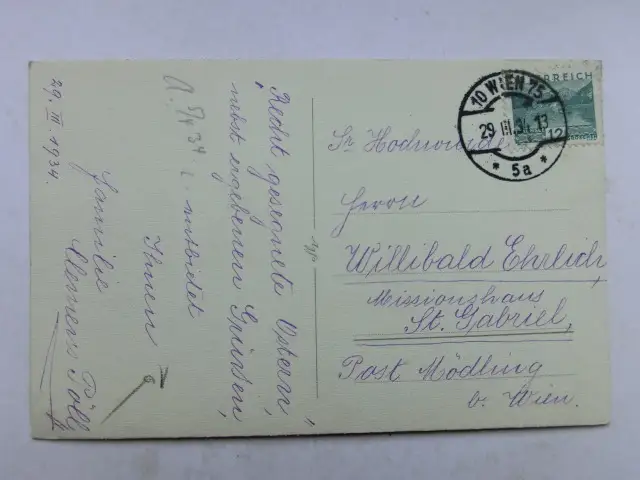 29. III. 1934.
Recht gesegnete Ostern,
nebst ergebenen Grüßen,
entbietet
Ihnen
Familie
Clemens Pöll
ÖSTERREICH
12
10 WIEN 75
29.III.34.13
* 5a *
Sr Hochwürden
Herrn
Willibald Ehrlich,
Missionshaus
St. Gabriel,
Post Mödling
b. Wien.